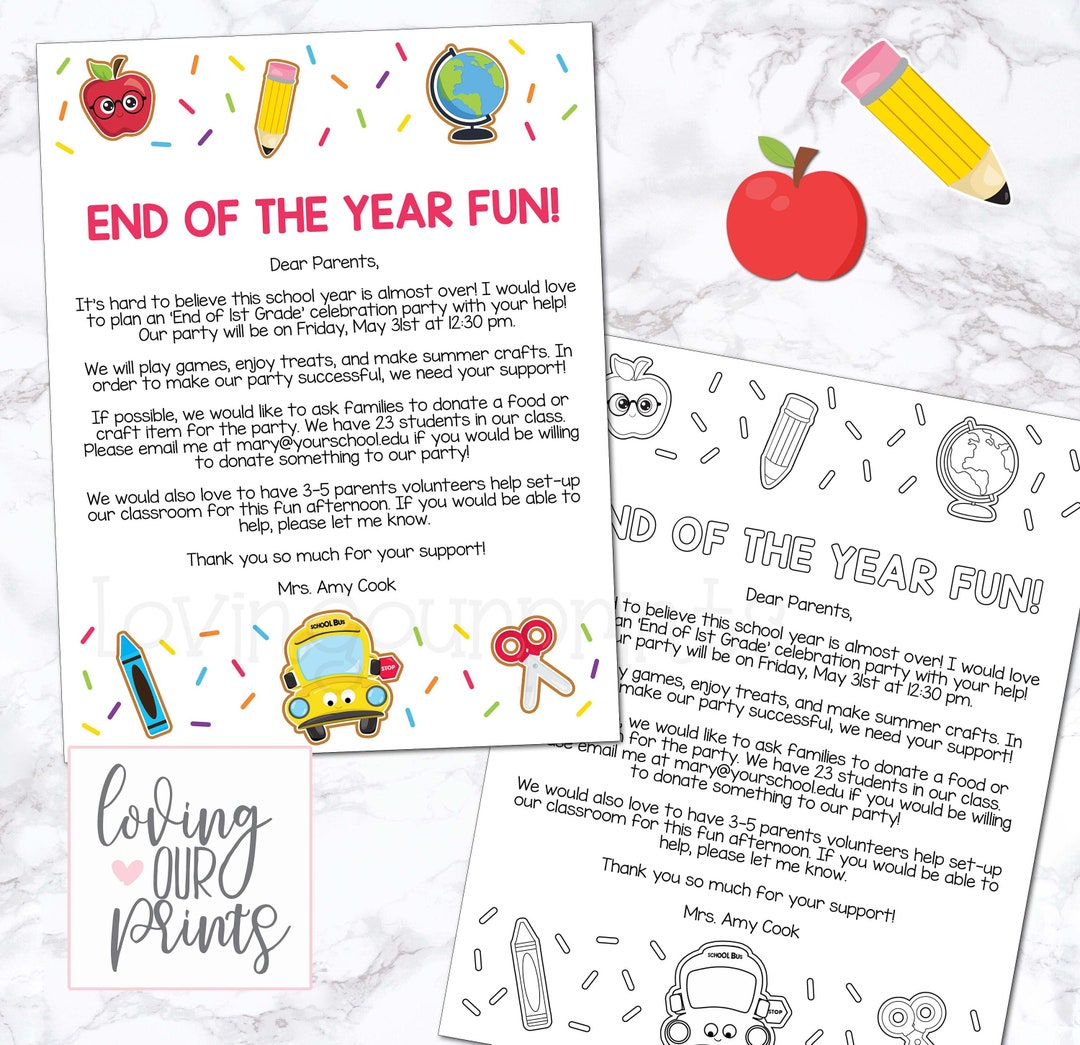 END OF THE YEAR FUN!
Dear Parents,
It's hard to believe this school year is almost over! I would love
to plan an 'End of 1st Grade' celebration party with your help!
Our party will be on Friday, May 31st at 12:30 pm.
We will play games, enjoy treats, and make summer crafts. In
order to make our party successful, we need your support!
If possible, we would like to ask families to donate a food or
craft item for the party. We have 23 students in our class.
Please email me at mary@yourschool.edu if you would be willing
to donate something to our party!
We would also love to have 3-5 parents volunteers help set-up
our classroom for this fun afternoon. If you would be able to
help, please let me know.
Thank you so much for your support!
Mrs. Amy Cook
SCHOOL BUS
STOP
lovingourprints
loving
OUR
prints
ND OF THE YEAR FUN!
Dear Parents,
to believe this school year is almost over! I would love
an 'End of 1st Grade' celebration party with your help!
ur party will be on Friday, May 31st at 12:30 pm.
games, enjoy treats, and make summer crafts. In
make our party successful, we need your support!
we would like to ask families to donate a food or
for the party. We have 23 students in our class.
email me at mary@yourschool.edu if you would be willing
to donate something to our party!
We would also love to have 3-5 parents volunteers help set-up
our classroom for this fun afternoon. If you would be able to
help, please let me know.
Thank you so much for your support!
Mrs. Amy Cook
SCHOOL BUS
STOP